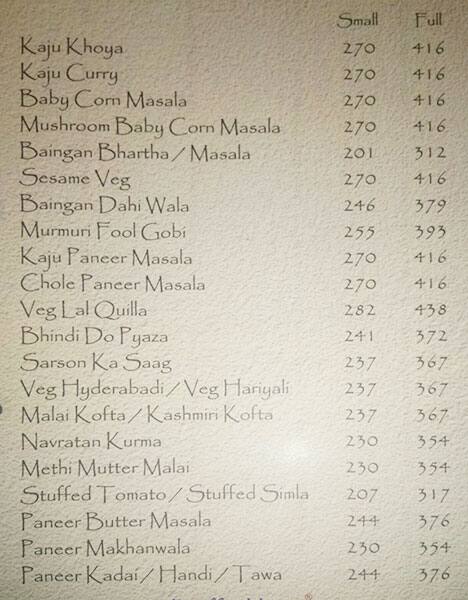 Small Full
Kaju Khoya 270 416
Kaju Curry 270 416
Baby Corn Masala 270 416
Mushroom Baby Corn Masala 270 416
Baingan Bhartha / Masala 201 312
Sesame Veg 270 416
Baingan Dahi Wala 246 379
Murmuri Fool Gobi 255 393
Kaju Paneer Masala 270 416
Chole Paneer Masala 270 416
Veg Lal Quilla 282 438
Bhindi Do Pyaza 241 372
Sarson Ka Saag 237 367
Veg Hyderabadi / Veg Hariyali 237 367
Malai Kofta / Kashmiri Kofta 237 367
Navratan Kurma 230 354
Methi Mutter Malai 230 354
Stuffed Tomato / Stuffed Simla 207 317
Paneer Butter Masala 244 376
Paneer Makhanwala 230 354
Paneer Kadai / Handi / Tawa 244 376